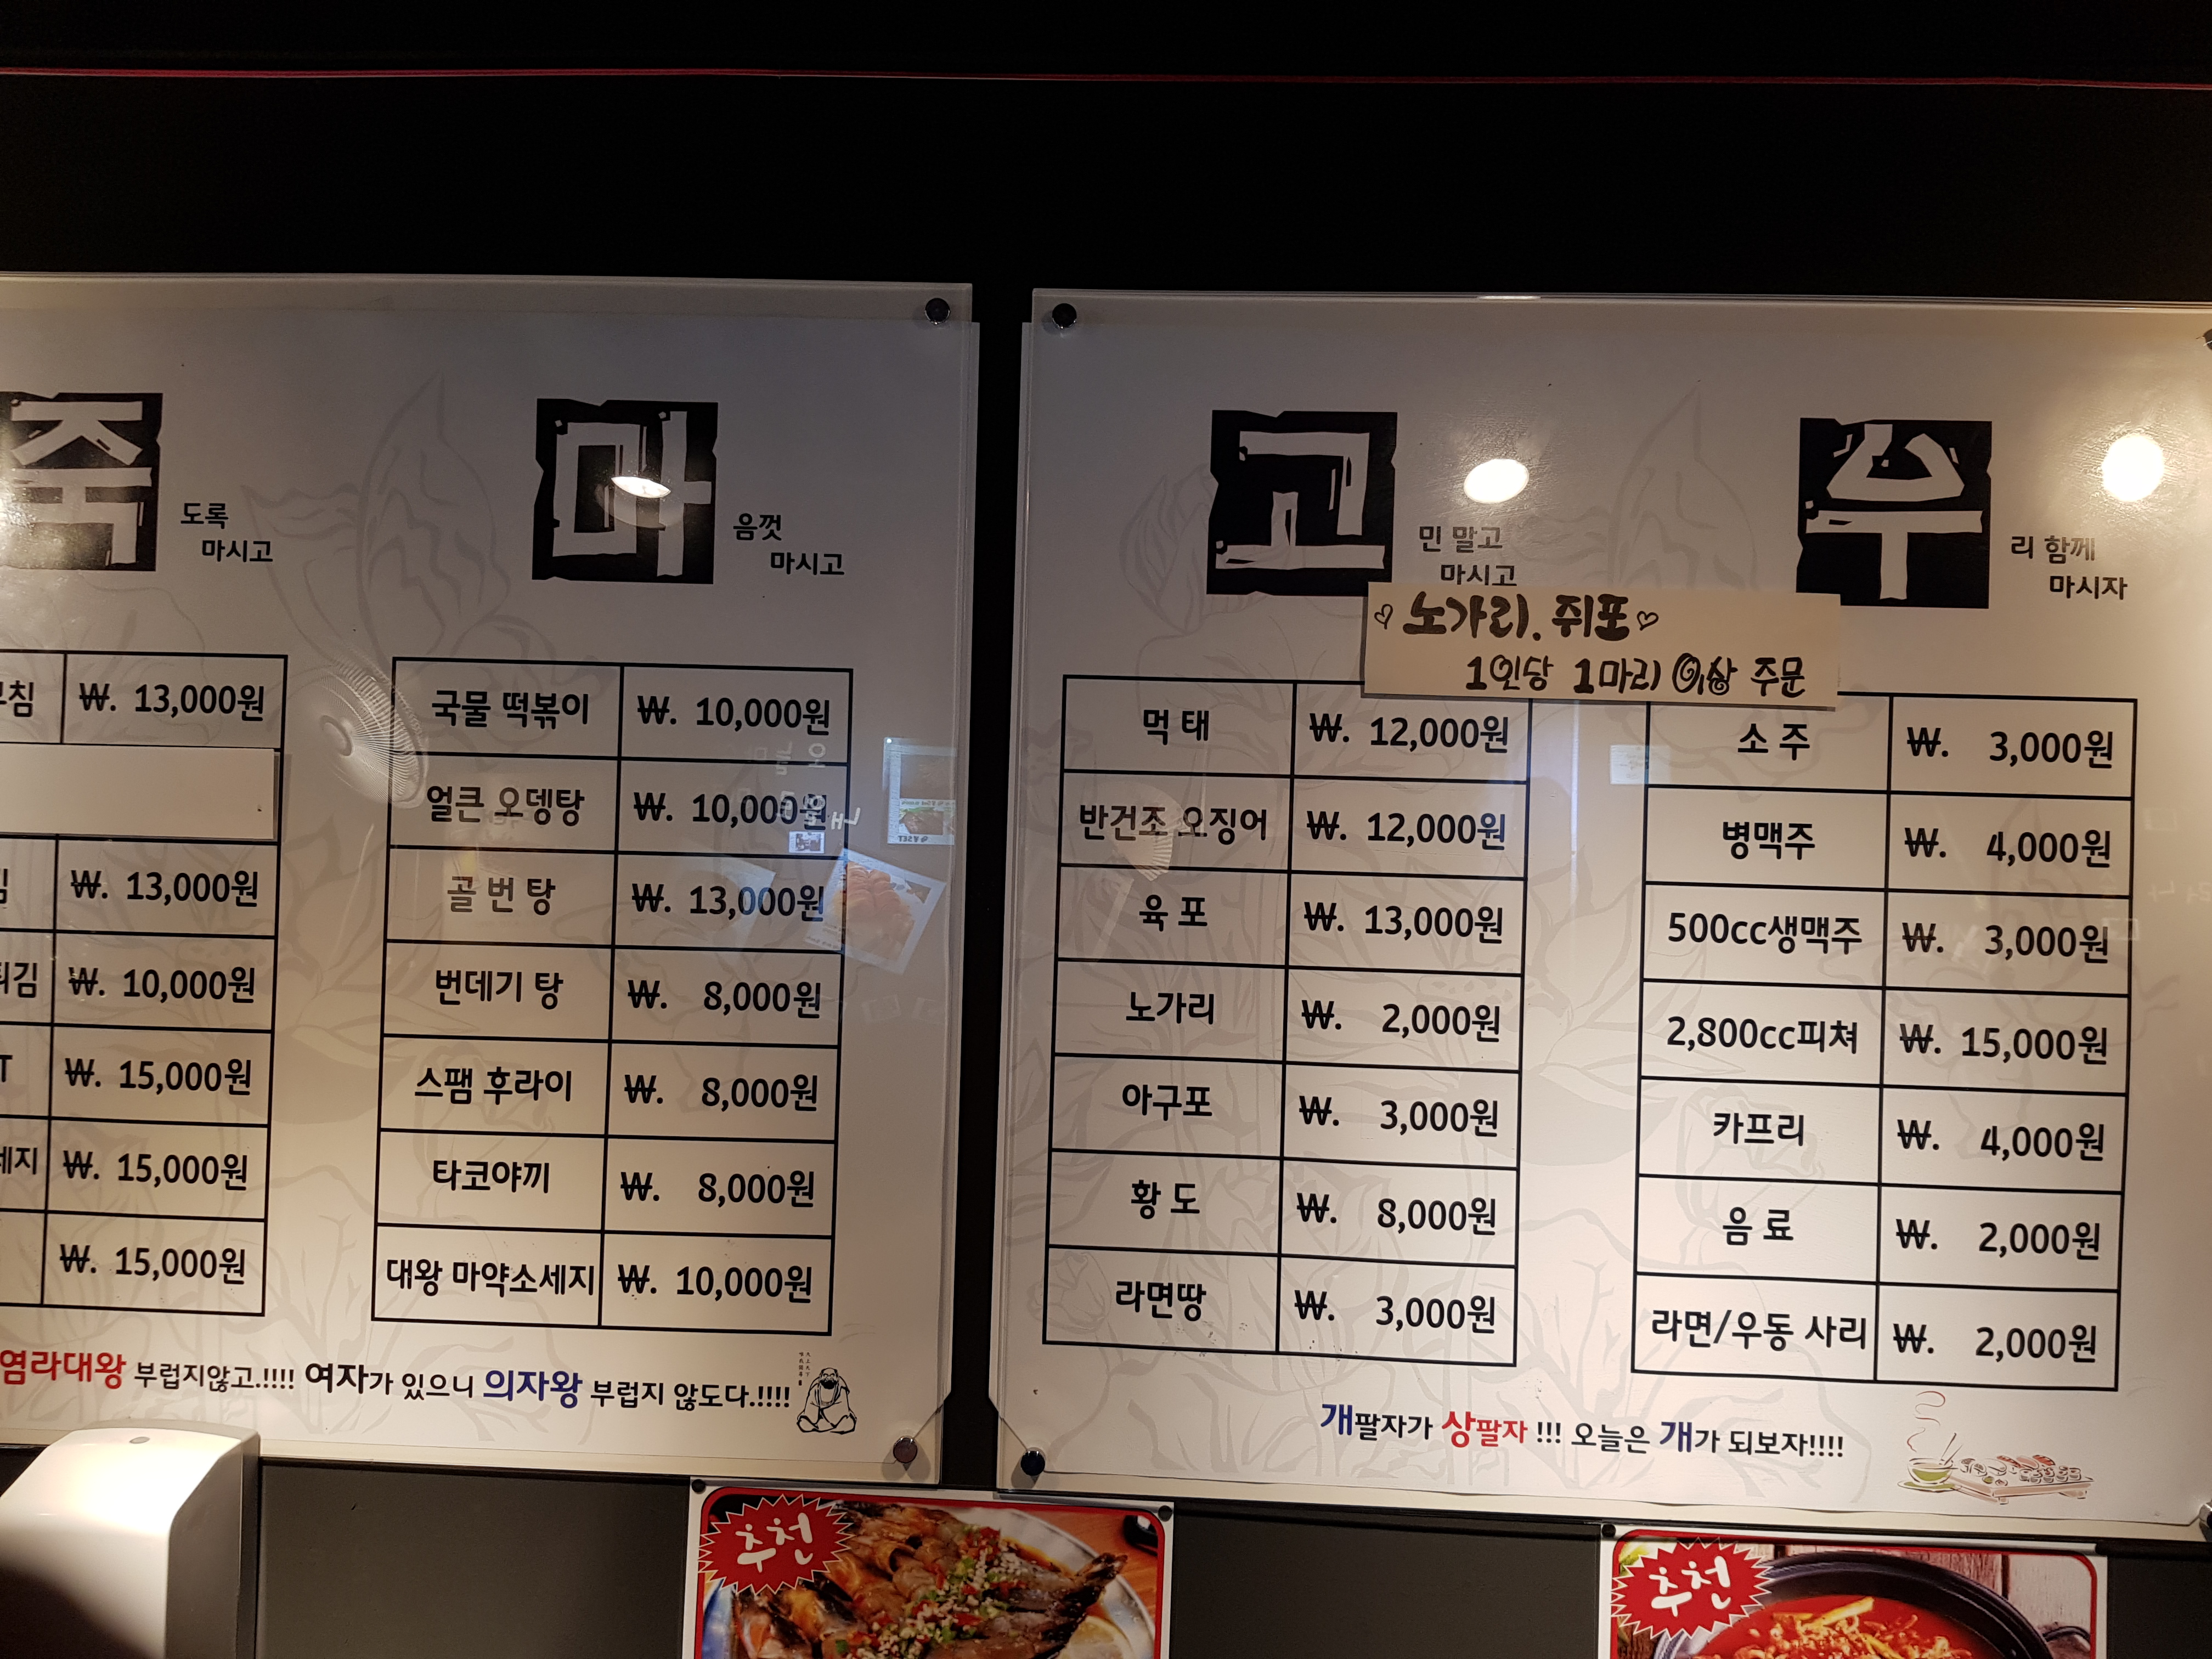 죽
도록
마시고
마
음껏
마시고
고
민 말고
마시고
수
리 함께
마시자
노가리. 쥐포
1인당 1마리 이상 주문
침 ₩. 13,000원
₩. 13,000원
튀김 ₩. 10,000원
T ₩. 15,000원
세지 ₩. 15,000원
₩. 15,000원
국물 떡볶이 ₩. 10,000원
얼큰 오뎅탕 ₩. 10,000원
골 번 탕 ₩. 13,000원
번데기 탕 ₩. 8,000원
스팸 후라이 ₩. 8,000원
타코야끼 ₩. 8,000원
대왕 마약소세지 ₩. 10,000원
먹 태 ₩. 12,000원
반건조 오징어 ₩. 12,000원
육 포 ₩. 13,000원
노가리 ₩. 2,000원
아구포 ₩. 3,000원
황 도 ₩. 8,000원
라면땅 ₩. 3,000원
소 주 ₩. 3,000원
병맥주 ₩. 4,000원
500cc생맥주 ₩. 3,000원
2,800cc피쳐 ₩. 15,000원
카프리 ₩. 4,000원
음 료 ₩. 2,000원
라면/우동 사리 ₩. 2,000원
염라대왕 부럽지않고.!!!! 여자가 있으니 의자왕 부럽지 않도다.!!!!!
개팔자가 상팔자 !!! 오늘은 개가 되보자!!!!
추천
추천